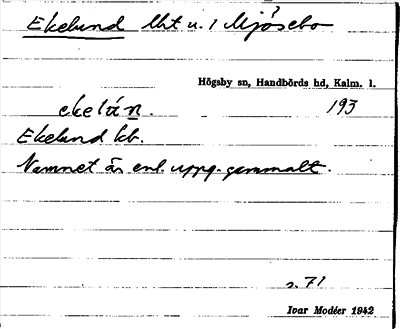 Ekelund lht u. 1 Mjösebo
Högsby sn, Handbörds hd, Kalm. l.
ekelún. 193
Ekelund kb.
Namnet är enl. uppg. gammalt.
s. 71
Ivar Modéer 1942